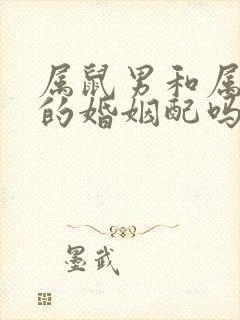 属鼠男和属
的婚姻配吗
墨武